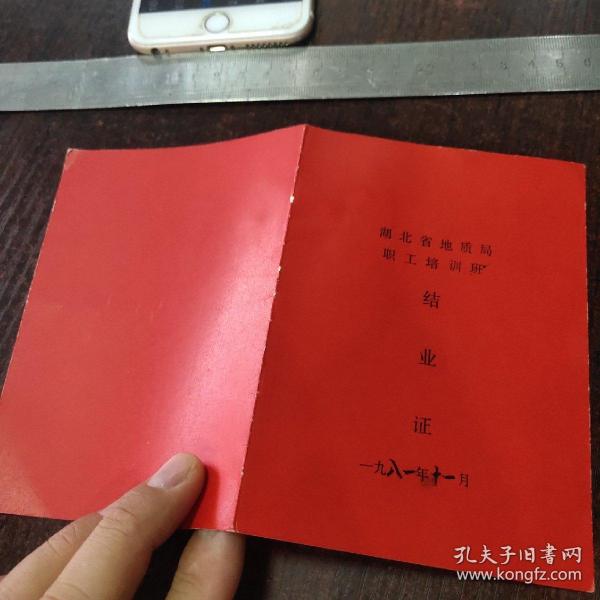 湖北省地质局
职工培训班
结
业
证
一九八一年十一月
孔夫子旧书网
www.kongfz.com